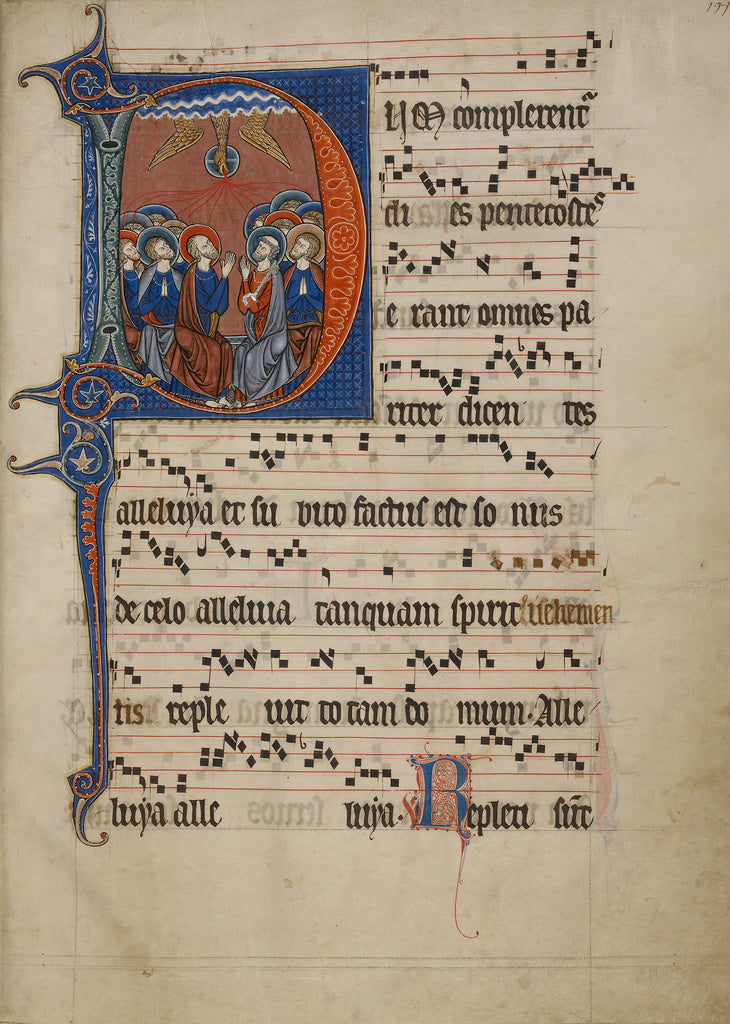 DUM complerent᷑
di es pentecostes
e rant omnes pa
riter dicen tes
alleluya et su bito factus est so nus
de celo alleluia tanquam spirit vehemen
tis reple uit to tam do mum. Alle
luya alle luya. Repleti sūt